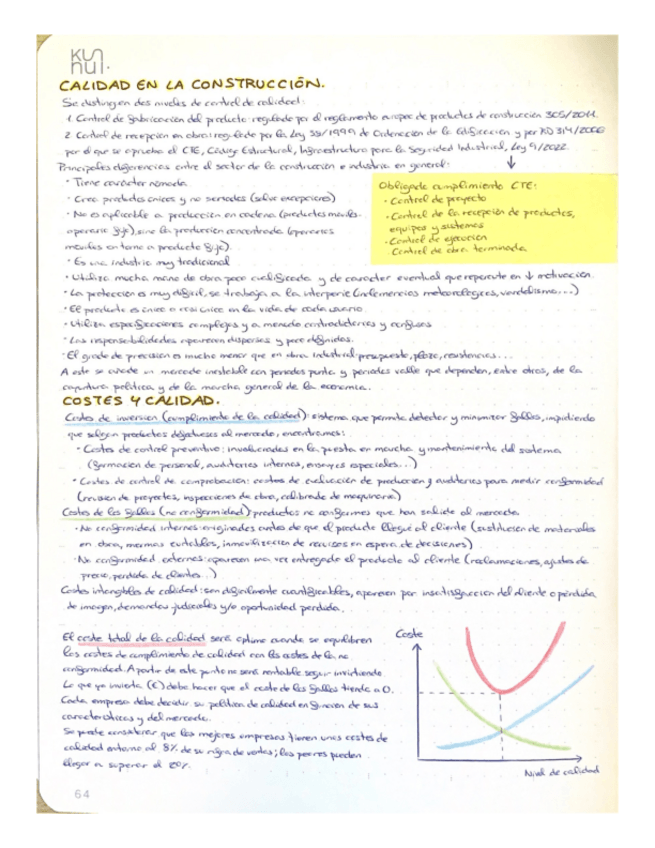 kunnui.
CALIDAD EN LA CONSTRUCCIÓN.
Se distinguen dos niveles de control de calidad:
1. Control de fabricación del producto: regulado por el reglamento europeo de productos de construcción 305/2011.
2. Control de recepción en obra: regulado por la Ley 38/1999 de Ordenación de la Edificación y por RD 314/2006
por el que se aprueba el CTE, Código Estructural, Infraestructura para la Seguridad Industrial, Ley 9/2022.
Principales diferencias entre el sector de la construcción e industria en general: ↓
· Tiene carácter nómada
· Crea productos únicos y no seriados (salvo excepciones)
· No es aplicable a producción en cadena (productos móviles-
operario fijo), sino la producción concentrada (operarios
móviles en torno a producto fijo).
· Es una industria muy tradicional
Obligado cumplimiento CTE:
· Control de proyecto
· Control de la recepción de productos,
equipos y sistemas
· Control de ejecución
· Control de obra terminada
· Utiliza mucha mano de obra poco cualificada y de carácter eventual que repercute en ↓ motivación.
· La protección es muy difícil, se trabaja a la intemperie (inclemencias meteorológicas, vandalismo...)
· El producto es único o casi único en la vida de cada usuario.
· Utiliza especificaciones complejas y a menudo contradictorias y confusas
· Las responsabilidades aparecen dispersas y poco definidas.
· El grado de precisión es mucho menor que en obra industrial: presupuesto, plazo, resistencias...
A esto se añade un mercado inestable con periodos punta y periodos valle que dependen, entre otros, de la
coyuntura política y de la marcha general de la economía.
COSTES Y CALIDAD.
Costes de inversión (cumplimiento de la calidad): sistema que permite detectar y minimizar fallos, impidiendo
que salgan productos defectuosos al mercado, encontramos:
· Costes de control preventivo: involucradas en la puesta en marcha y mantenimiento del sistema
(formación de personal, auditorías internas, ensayos especiales...)
· Costes de control de comprobación: costes de evaluación de producción y auditorías para medir conformidad
(revisión de proyectos, inspecciones de obra, calibrado de maquinaria)
Costes de los fallos (no conformidad): productos no conformes que han salido al mercado
· No conformidad internas: originados antes de que el producto llegue al cliente (sustitución de materiales
en obra, mermas evitables, inmovilización de recursos en espera de decisiones)
· No conformidad externos: aparecen una vez entregado el producto al cliente (reclamaciones, ajustes de
precio, perdida de clientes...)
Costes intangibles de calidad: son difícilmente cuantificables, aparecen por insatisfacción del cliente o pérdida
de imagen, demandas judiciales y/o oportunidad perdida.
El coste total de la calidad será óptimo cuando se equilibren
los costes de cumplimiento de calidad con los costes de la no
conformidad. A partir de este punto no será rentable seguir invirtiendo.
Lo que yo invierta (€) debe hacer que el coste de los fallos tienda a 0.
Cada empresa debe decidir su política de calidad en función de sus
características y del mercado.
Se puede considerar que las mejores empresas tienen unos costes de
calidad entorno al 8% de su cifra de ventas; las peores pueden
llegar a superar el 20%.
Coste
Nivel de calidad
64